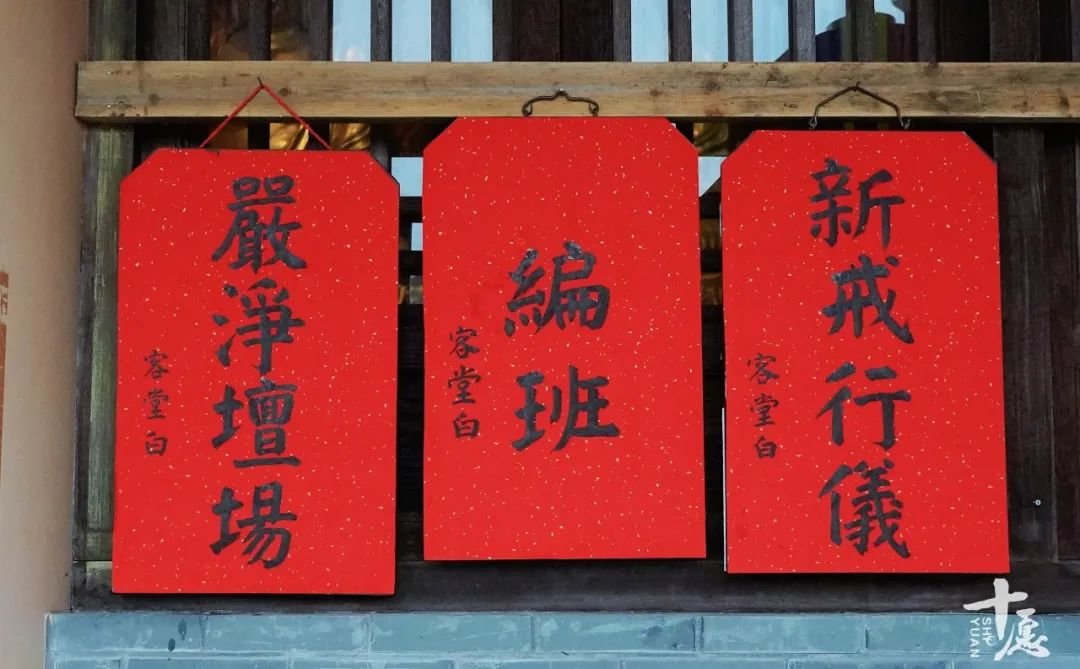 新戒行儀
客堂白
編班
客堂白
嚴淨壇場
客堂白
十愿
SHI
YUAN